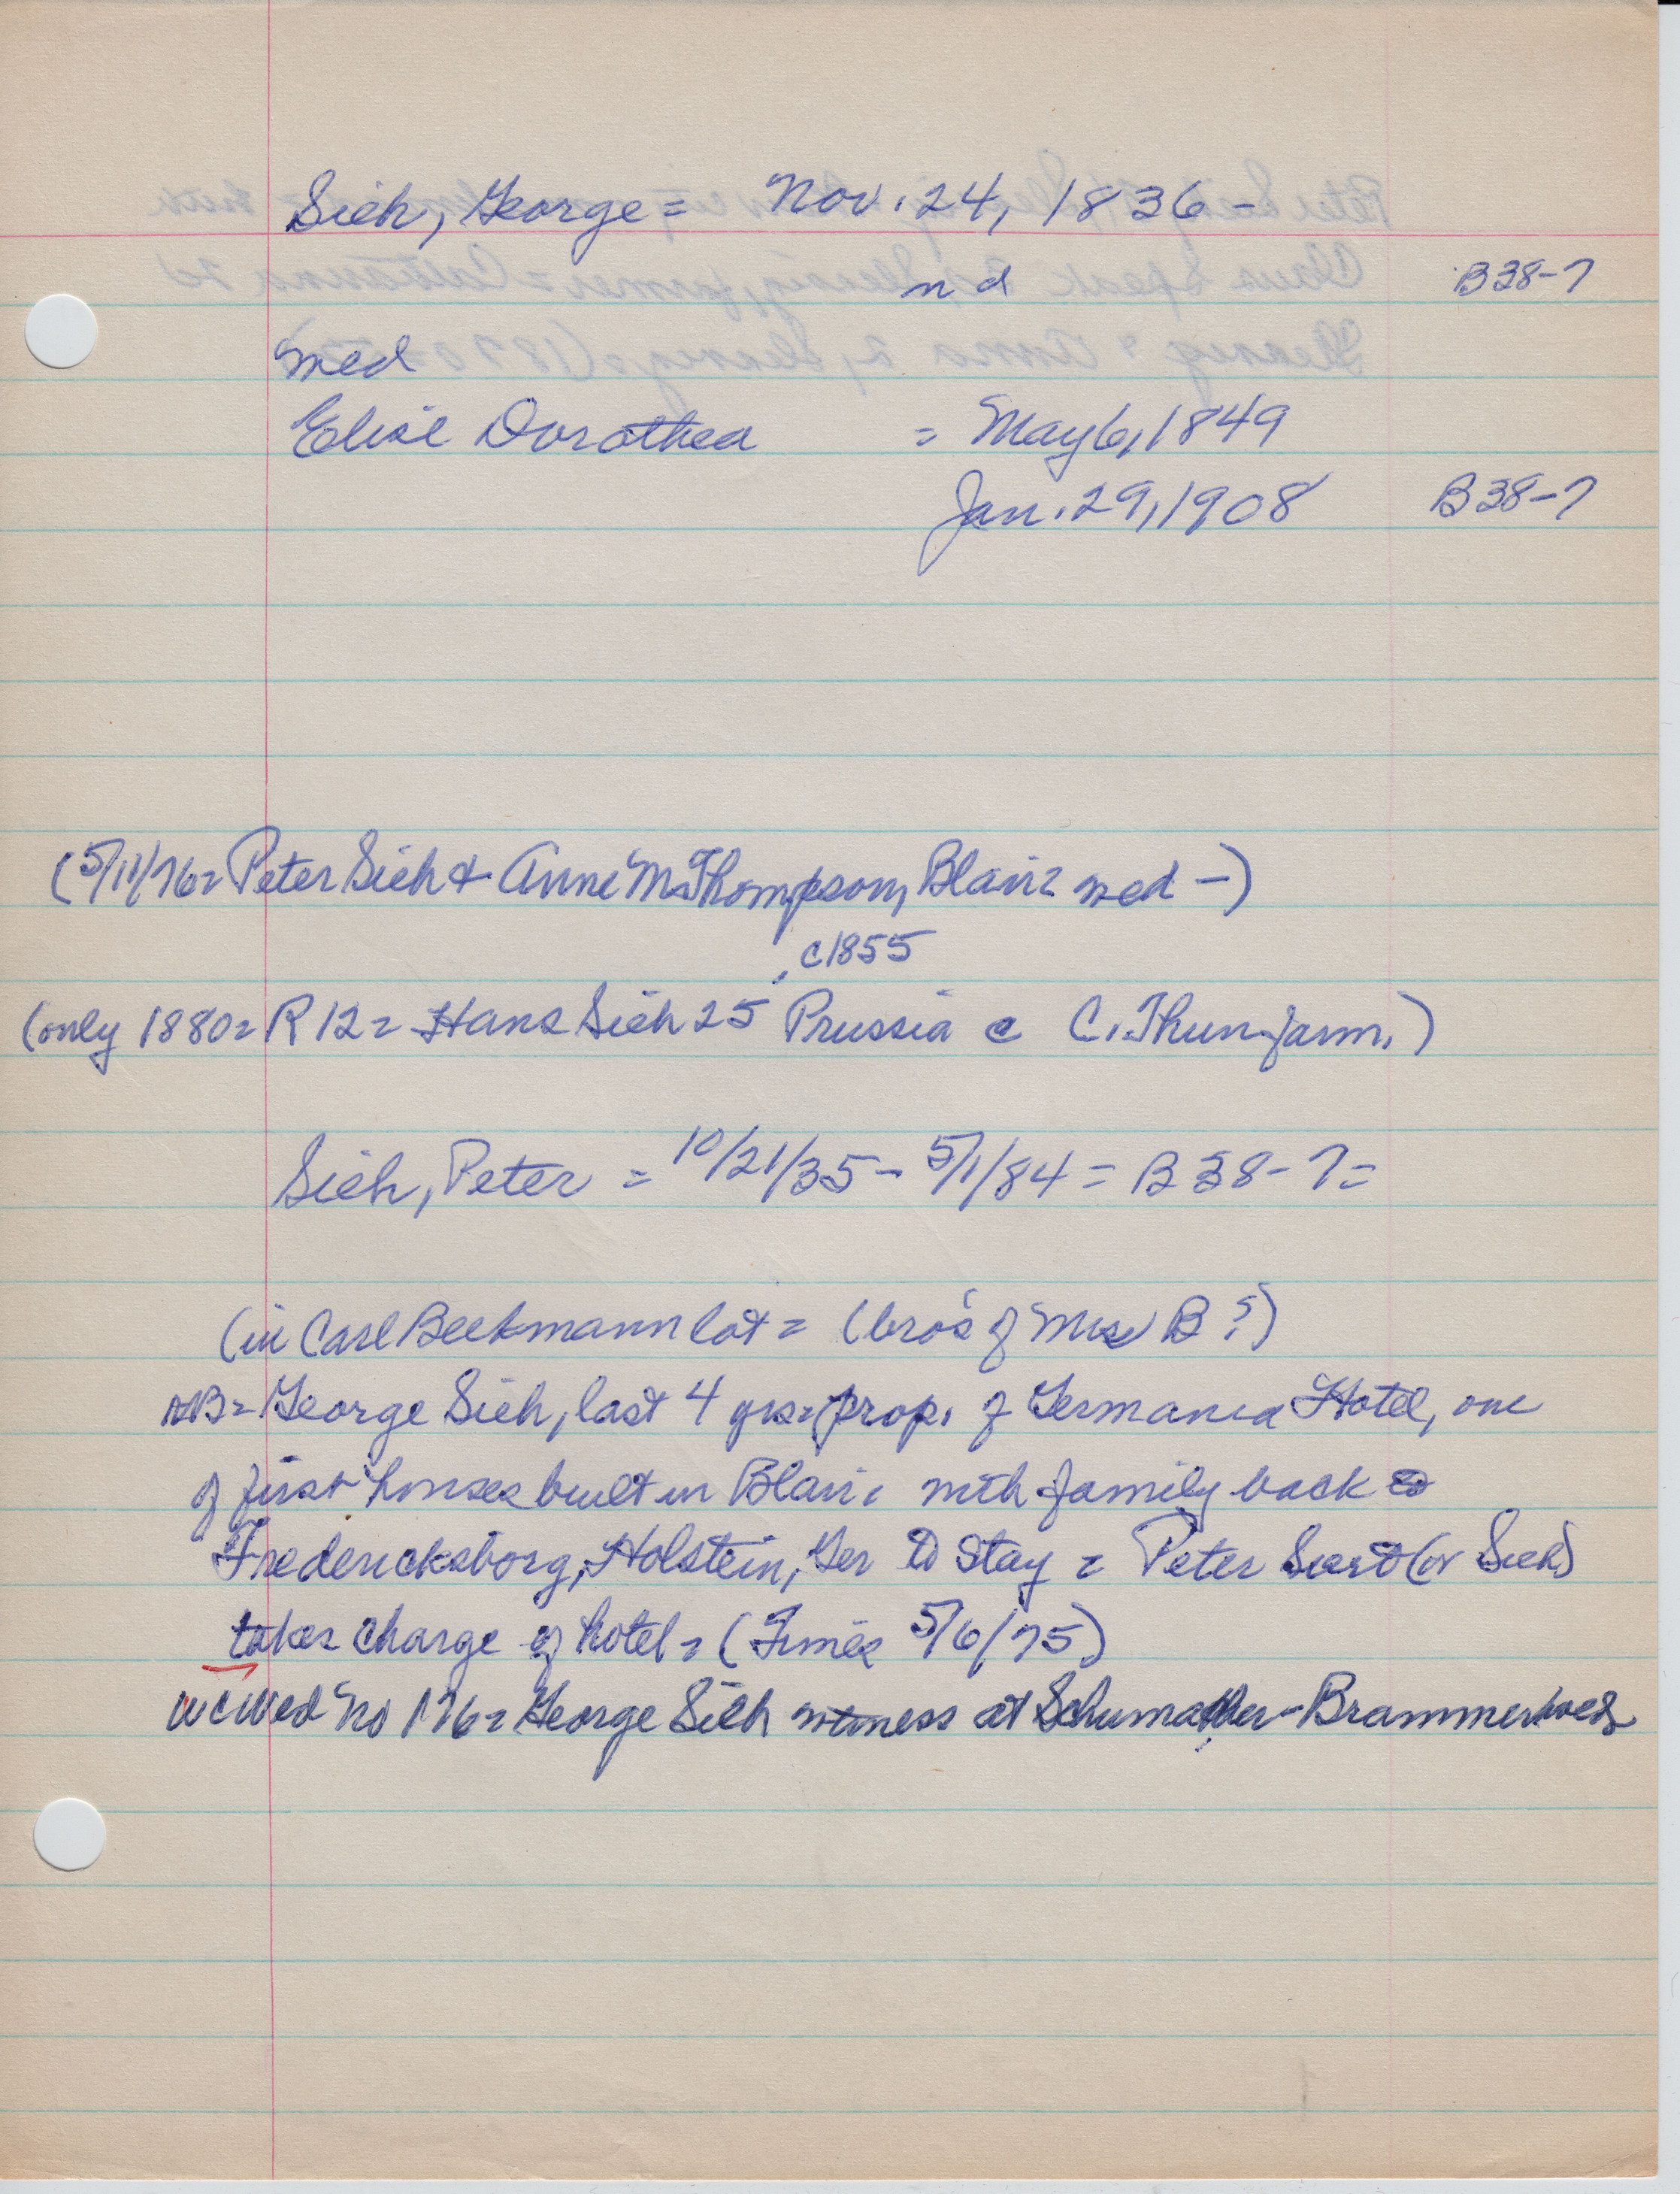 Sieh, George = Nov. 24, 1836 -
n d B38-7
med
Elise Dorothea = May 6, 1849
Jan. 29, 1908 B38-7
(5/11/76 = Peter Sieh & Anne M. Thompson, Blair = med -)
c1855
(only 1880 = R12 = Hans Sieh 25 Prussia c C. Thun - farm.)
Sieh, Peter = 10/21/35 - 5/1/84 = B38-7 =
(in Carl Beekmann lot = (bro's of Mrs B?)
NB = George Sieh, last 4 yrs = prop. of Germania Hotel, one
of first houses built in Blair, with family back to
Fredericksborg, Holstein, Ger to stay = Peter (or Sieh)
takes charge of hotel = (Times 5/6/75)
No 176 = George Sieh witness at Schumacher-Brammer